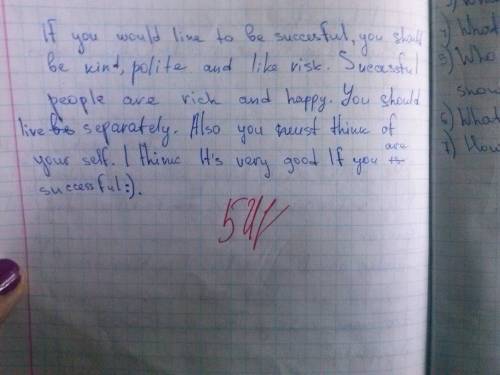 If you would like to be succesful, you should
be kind, polite and like risk. Successful
people are rich and happy. You should
live separately. Also you must think of
your self. I think It's very good If you are
successful:).
5
What
Who
6) What
7) How